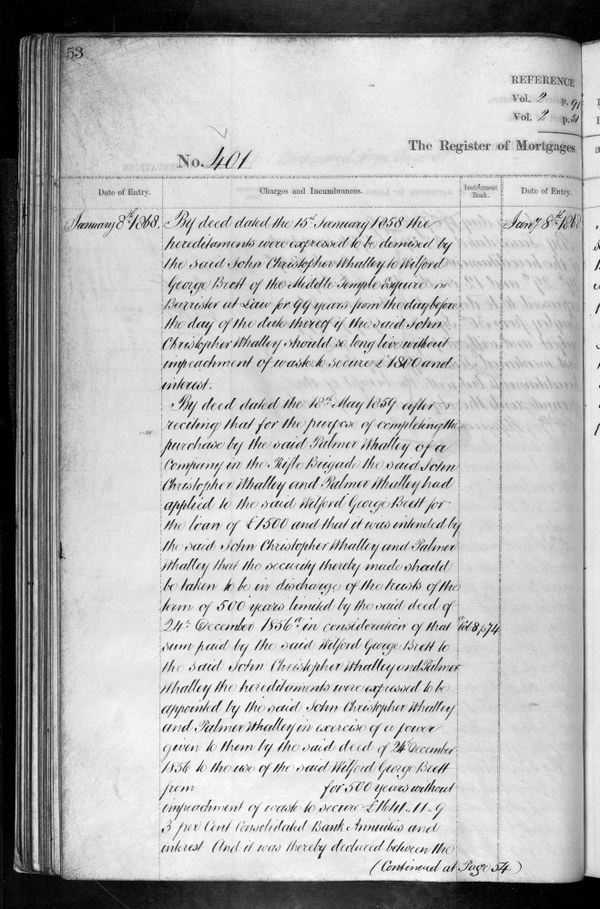 53
REFERENCE
Vol. 2 p. 91
Vol. 2 p. 51
The Register of Mortgages
No. 401
Date of Entry.
Charges and Incumbrances.
Instrument Book.
Date of Entry.
January 8th 1868.
By deed dated the 15th January 1858 the
hereditaments were expressed to be demised by
the said John Christopher Whalley to Wilford
George Brett of the Middle Temple Esquire
Barrister at Law for 99 years from the day before
the day of the date thereof if the said John
Christopher Whalley should so long live without
impeachment of waste to secure £1800 and
interest.
By deed dated the 18th May 1859 after
reciting that for the purpose of completing the
purchase by the said Palmer Whalley of a
Company in the Rifle Brigade the said John
Christopher Whalley and Palmer Whalley had
applied to the said Wilford George Brett for
the loan of £1500 and that it was intended by
the said John Christopher Whalley and Palmer
Whalley that the security thereby made should
be taken to be in discharge of the trusts of the
term of 500 years limited by the said deed of
24th December 1856 in consideration of that
sum paid by the said Wilford George Brett to
the said John Christopher Whalley and Palmer
Whalley the hereditaments were expressed to be
appointed by the said John Christopher Whalley
and Palmer Whalley in exercise of a power
given to them by the said deed of 24th December
1856 to the use of the said Wilford George Brett
from for 500 years without
impeachment of waste to secure £1641..11..9
3 per Cent Consolidated Bank Annuities and
interest And it was thereby deduced between the
(Continued at Page 54.)
Vol 8, p 74
Jany 8th 1868